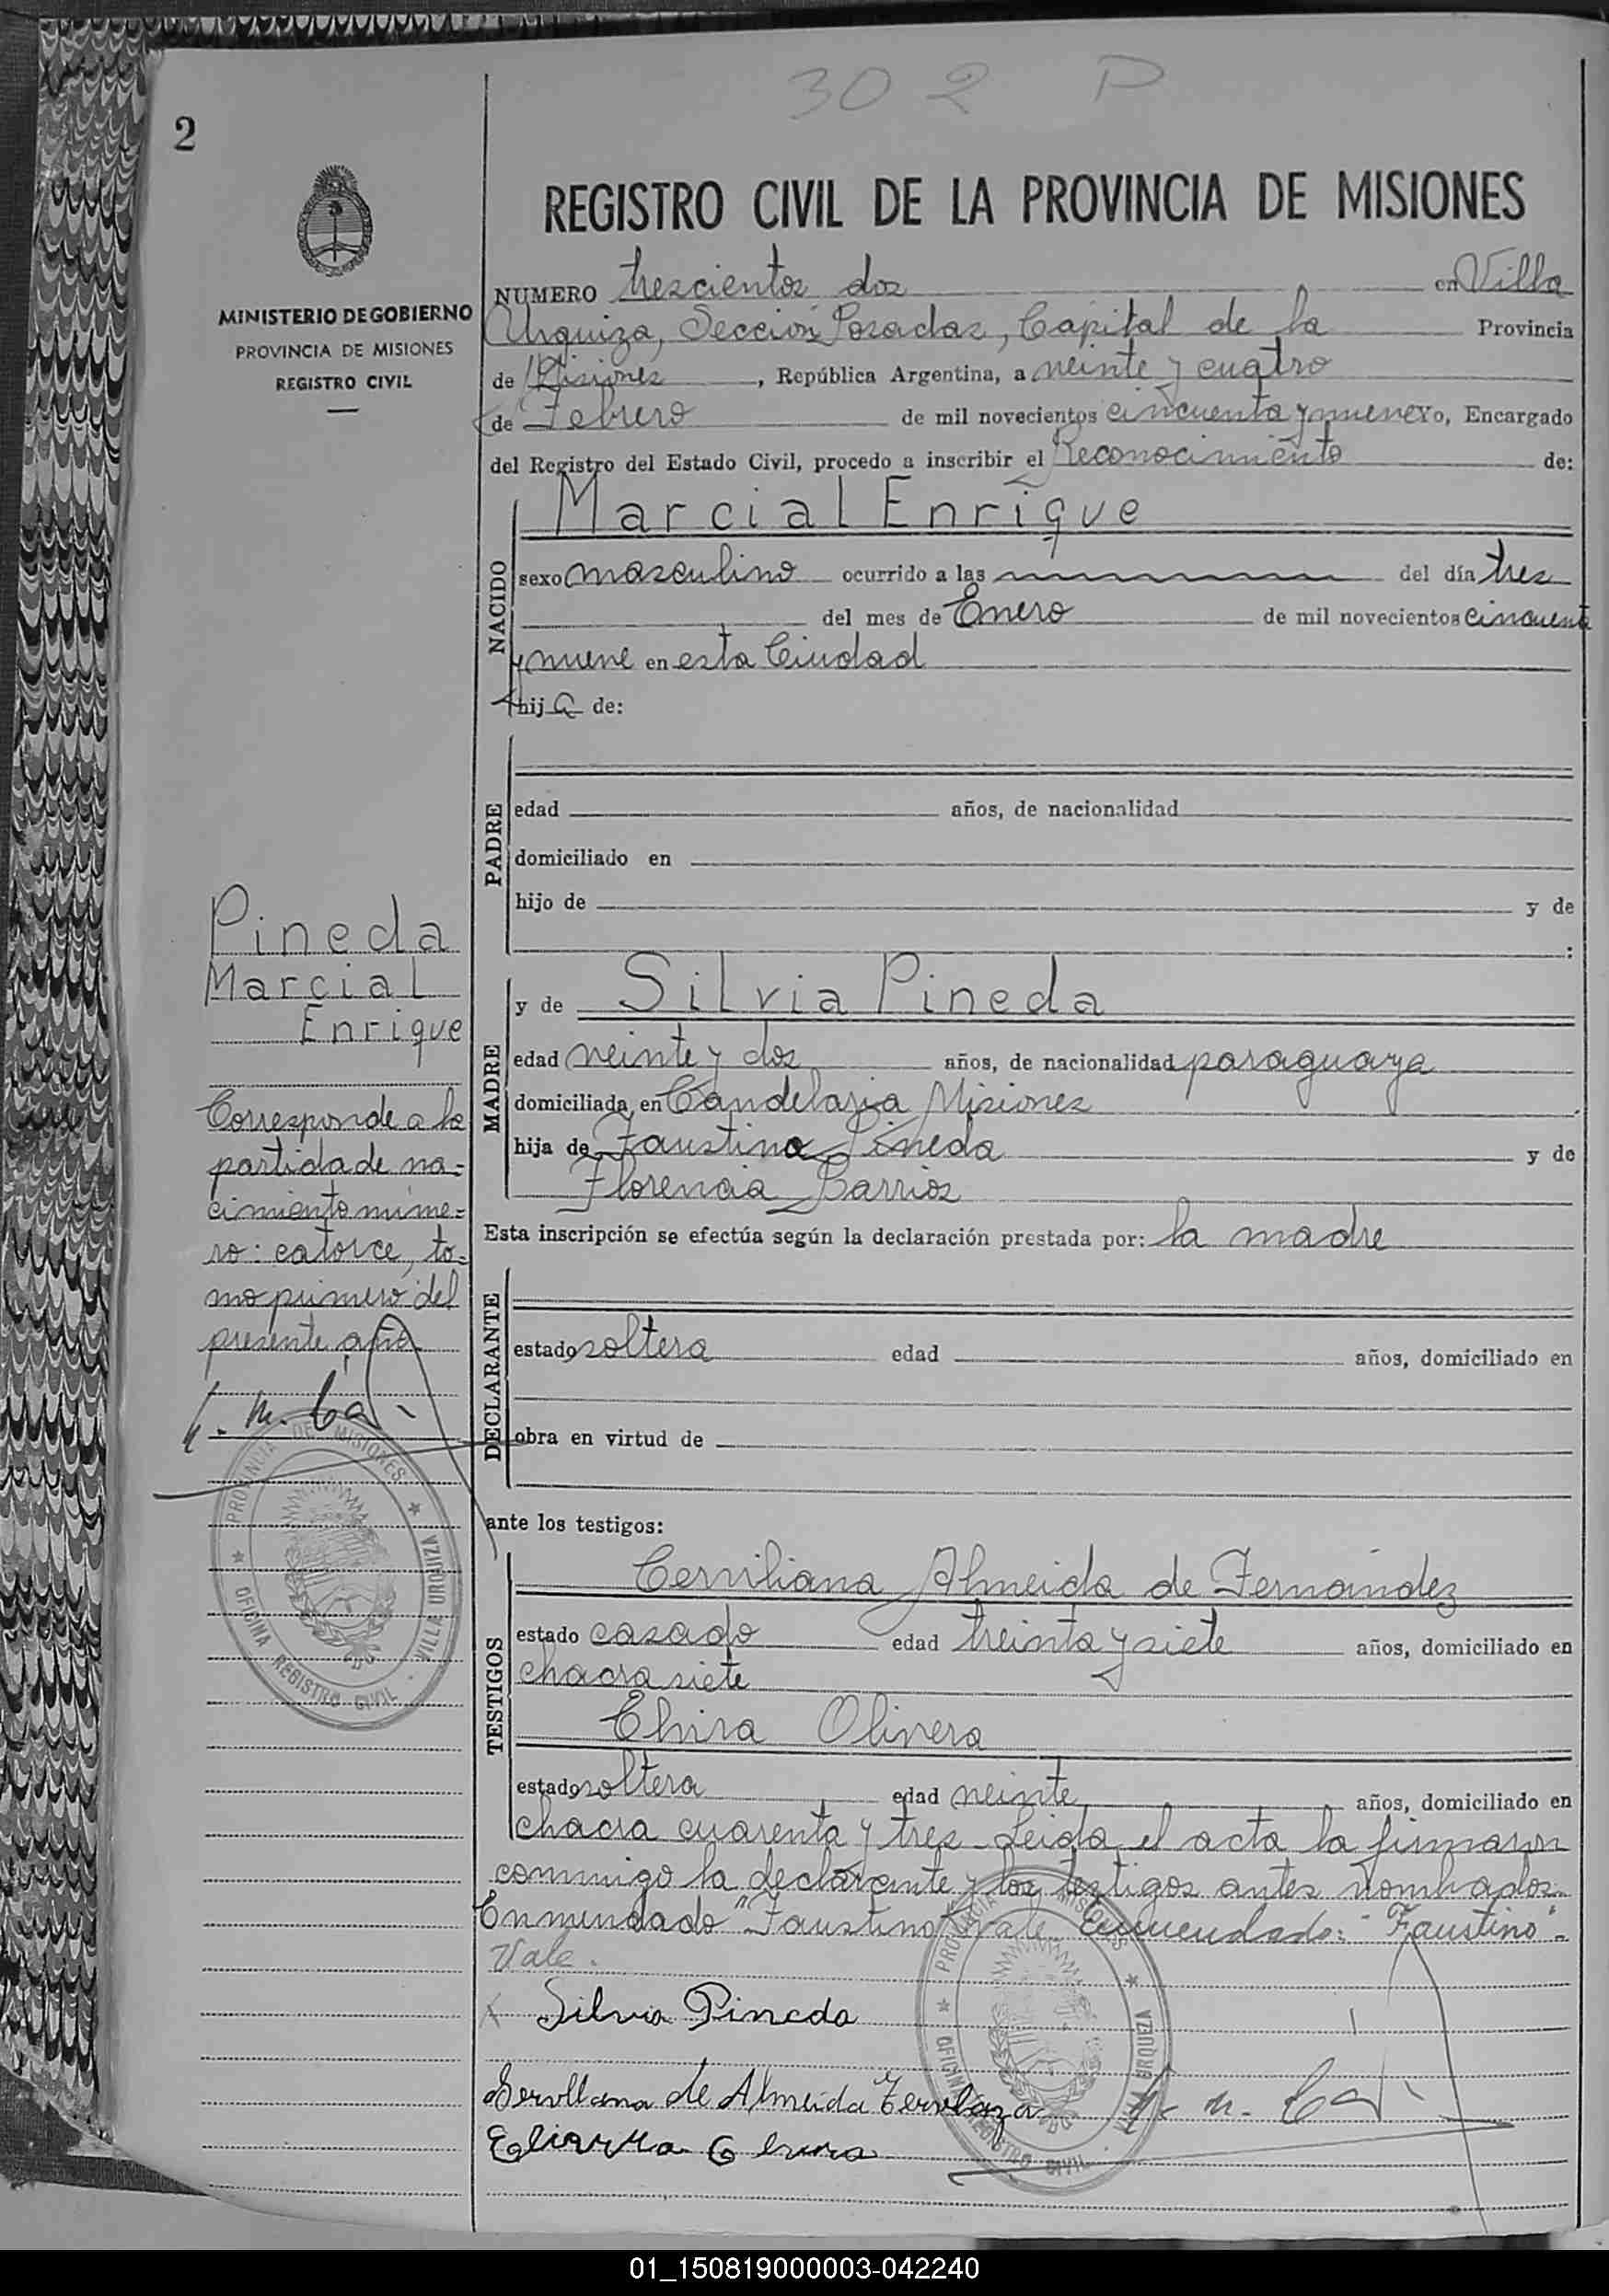 302 P
2
REGISTRO CIVIL DE LA PROVINCIA DE MISIONES
MINISTERIO DE GOBIERNO
PROVINCIA DE MISIONES
REGISTRO CIVIL
NUMERO trescientos dos en Villa
Urquiza, Sección Posadas, Capital de la Provincia
de Misiones, República Argentina, a veinte y cuatro
de Febrero de mil novecientos cincuenta y nueve Yo, Encargado
del Registro del Estado Civil, procedo a inscribir el Reconocimiento de:
NACIDO
Marcial Enrique
sexo masculino ocurrido a las del día tres
del mes de Enero de mil novecientos cincuenta
y nueve en esta Ciudad
hij o de:
PADRE
edad años, de nacionalidad
domiciliado en
hijo de y de
:
MADRE
y de Silvia Pineda
edad veinte y dos años, de nacionalidad paraguaya
domiciliada en Candelaria Misiones
hija de Faustino Pineda y de
Florencia Barrios
Esta inscripción se efectúa según la declaración prestada por: la madre
DECLARANTE
estado soltera edad años, domiciliado en
obra en virtud de
ante los testigos:
TESTIGOS
Cerviliana Almeida de Fernández
estado casado edad treinta y siete años, domiciliado en
chacra siete
Elvira Olivera
estado soltera edad veinte años, domiciliado en
chacra cuarenta y tres. Leida el acta la firmaron
conmigo la declarante y los testigos antes nombrados.
Enmendado "Faustino" vale. Enmendado: "Faustino".
Vale.
Silvia Pineda
de Almeida
Pineda
Marcial
Enrique
Corresponde a la
partida de na=
cimiento núme=
ro: catorce, to=
mo primero del
presente año
PROVINCIA DE MISIONES
OFICINA REGISTRO CIVIL
VILLA URQUIZA
PROVINCIA DE MISIONES
OFICINA REGISTRO CIVIL
VILLA URQUIZA
01_150819000003-042240